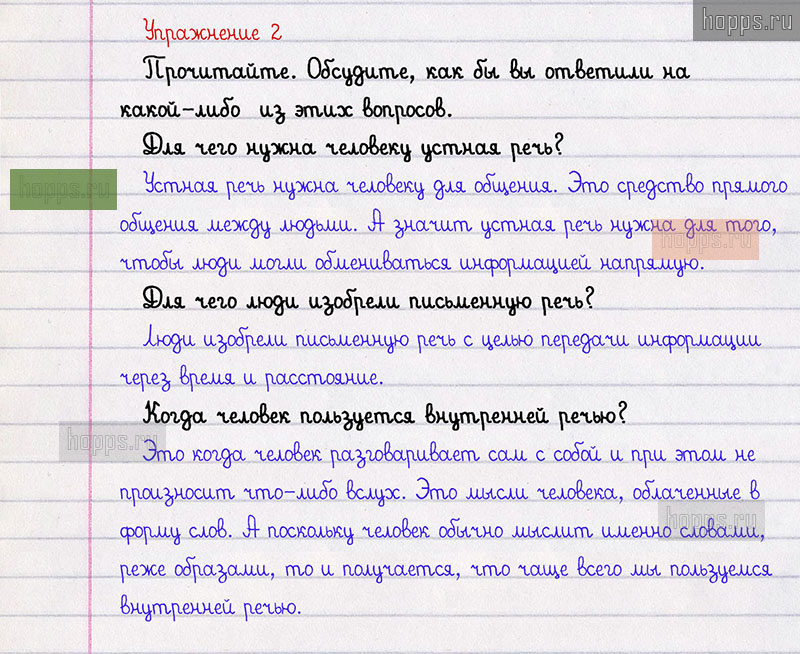 hopps.ru
Упражнение 2
Прочитайте. Обсудите, как бы вы ответили на
какой-либо из этих вопросов.
Для чего нужна человеку устная речь?
hopps.ru
Устная речь нужна человеку для общения. Это средство прямого
общения между людьми. А значит устная речь нужна для того,
hopps.ru
чтобы люди могли обмениваться информацией напрямую.
Для чего люди изобрели письменную речь?
Люди изобрели письменную речь с целью передачи информации
через время и расстояние.
Когда человек пользуется внутренней речью?
hopps.ru
Это когда человек разговаривает сам с собой и при этом не
произносит что-либо вслух. Это мысли человека, облаченные в
hopps.ru
форму слов. А поскольку человек обычно мыслит именно словами,
реже образами, то и получается, что чаще всего мы пользуемся
внутренней речью.